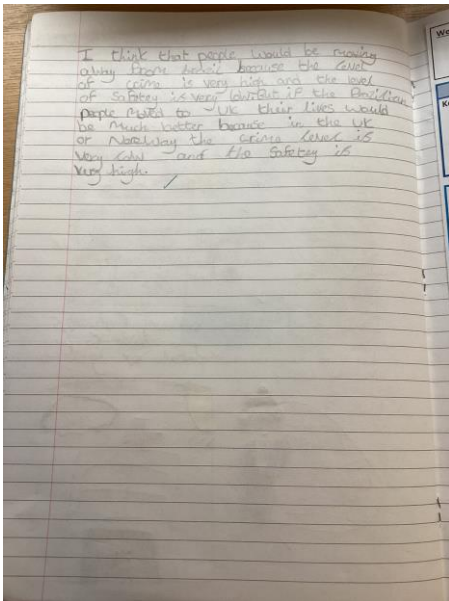 I think that people would be moving
away from brazil because the level
of crime is very high and the level
of safetey is very low. But if the Brazilian
people moved to UK their lives would
be much better because in the UK
or Norelway the crime level is
very low and the safetey is
very high.
We
K